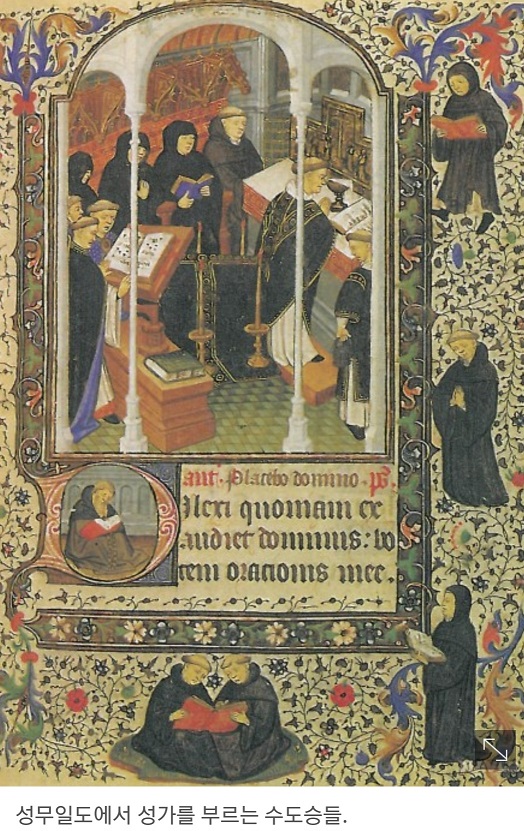 ant. Placebo domino. ps.
Dilexi quoniam ex
audiet dominus: vo
cem oracionis mee.
성무일도에서 성가를 부르는 수도승들.